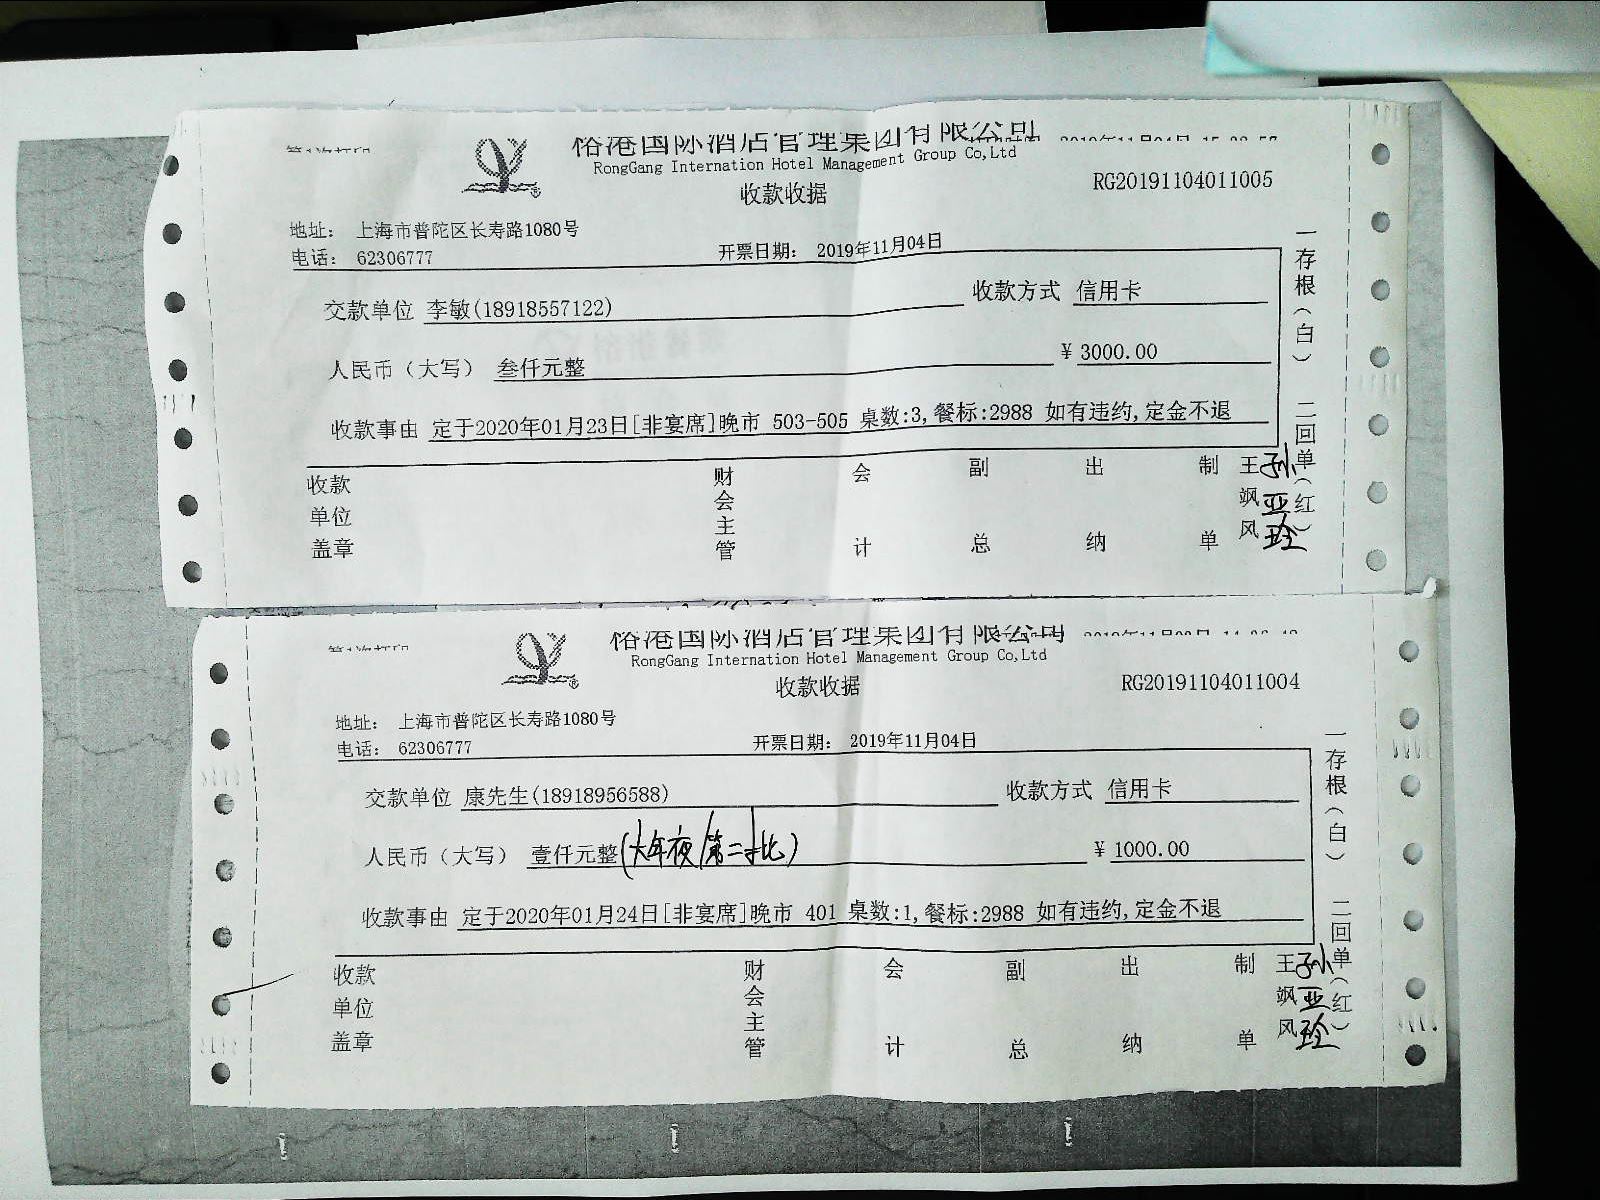 裕港国际酒店管理集团有限公司
RongGang Internation Hotel Management Group Co,Ltd
收款收据
RG20191104011005
地址： 上海市普陀区长寿路1080号
电话： 62306777
开票日期： 2019年11月04日
交款单位 李敏(18918557122)
收款方式 信用卡
人民币（大写） 叁仟元整
￥ 3000.00
收款事由 定于2020年01月23日[非宴席]晚市 503-505 桌数:3,餐标:2988 如有违约,定金不退
一存根（白） 二回单（红）
收款单位盖章
财会主管
会计
副总
出纳
制单
王飒风
孙亚玲
裕港国际酒店管理集团有限公司
RongGang Internation Hotel Management Group Co,Ltd
收款收据
RG20191104011004
地址： 上海市普陀区长寿路1080号
电话： 62306777
开票日期： 2019年11月04日
交款单位 康先生(18918956588)
收款方式 信用卡
人民币（大写） 壹仟元整(大年夜/第二批)
￥ 1000.00
收款事由 定于2020年01月24日[非宴席]晚市 401 桌数:1,餐标:2988 如有违约,定金不退
一存根（白） 二回单（红）
收款单位盖章
财会主管
会计
副总
出纳
制单
王飒风
孙亚玲